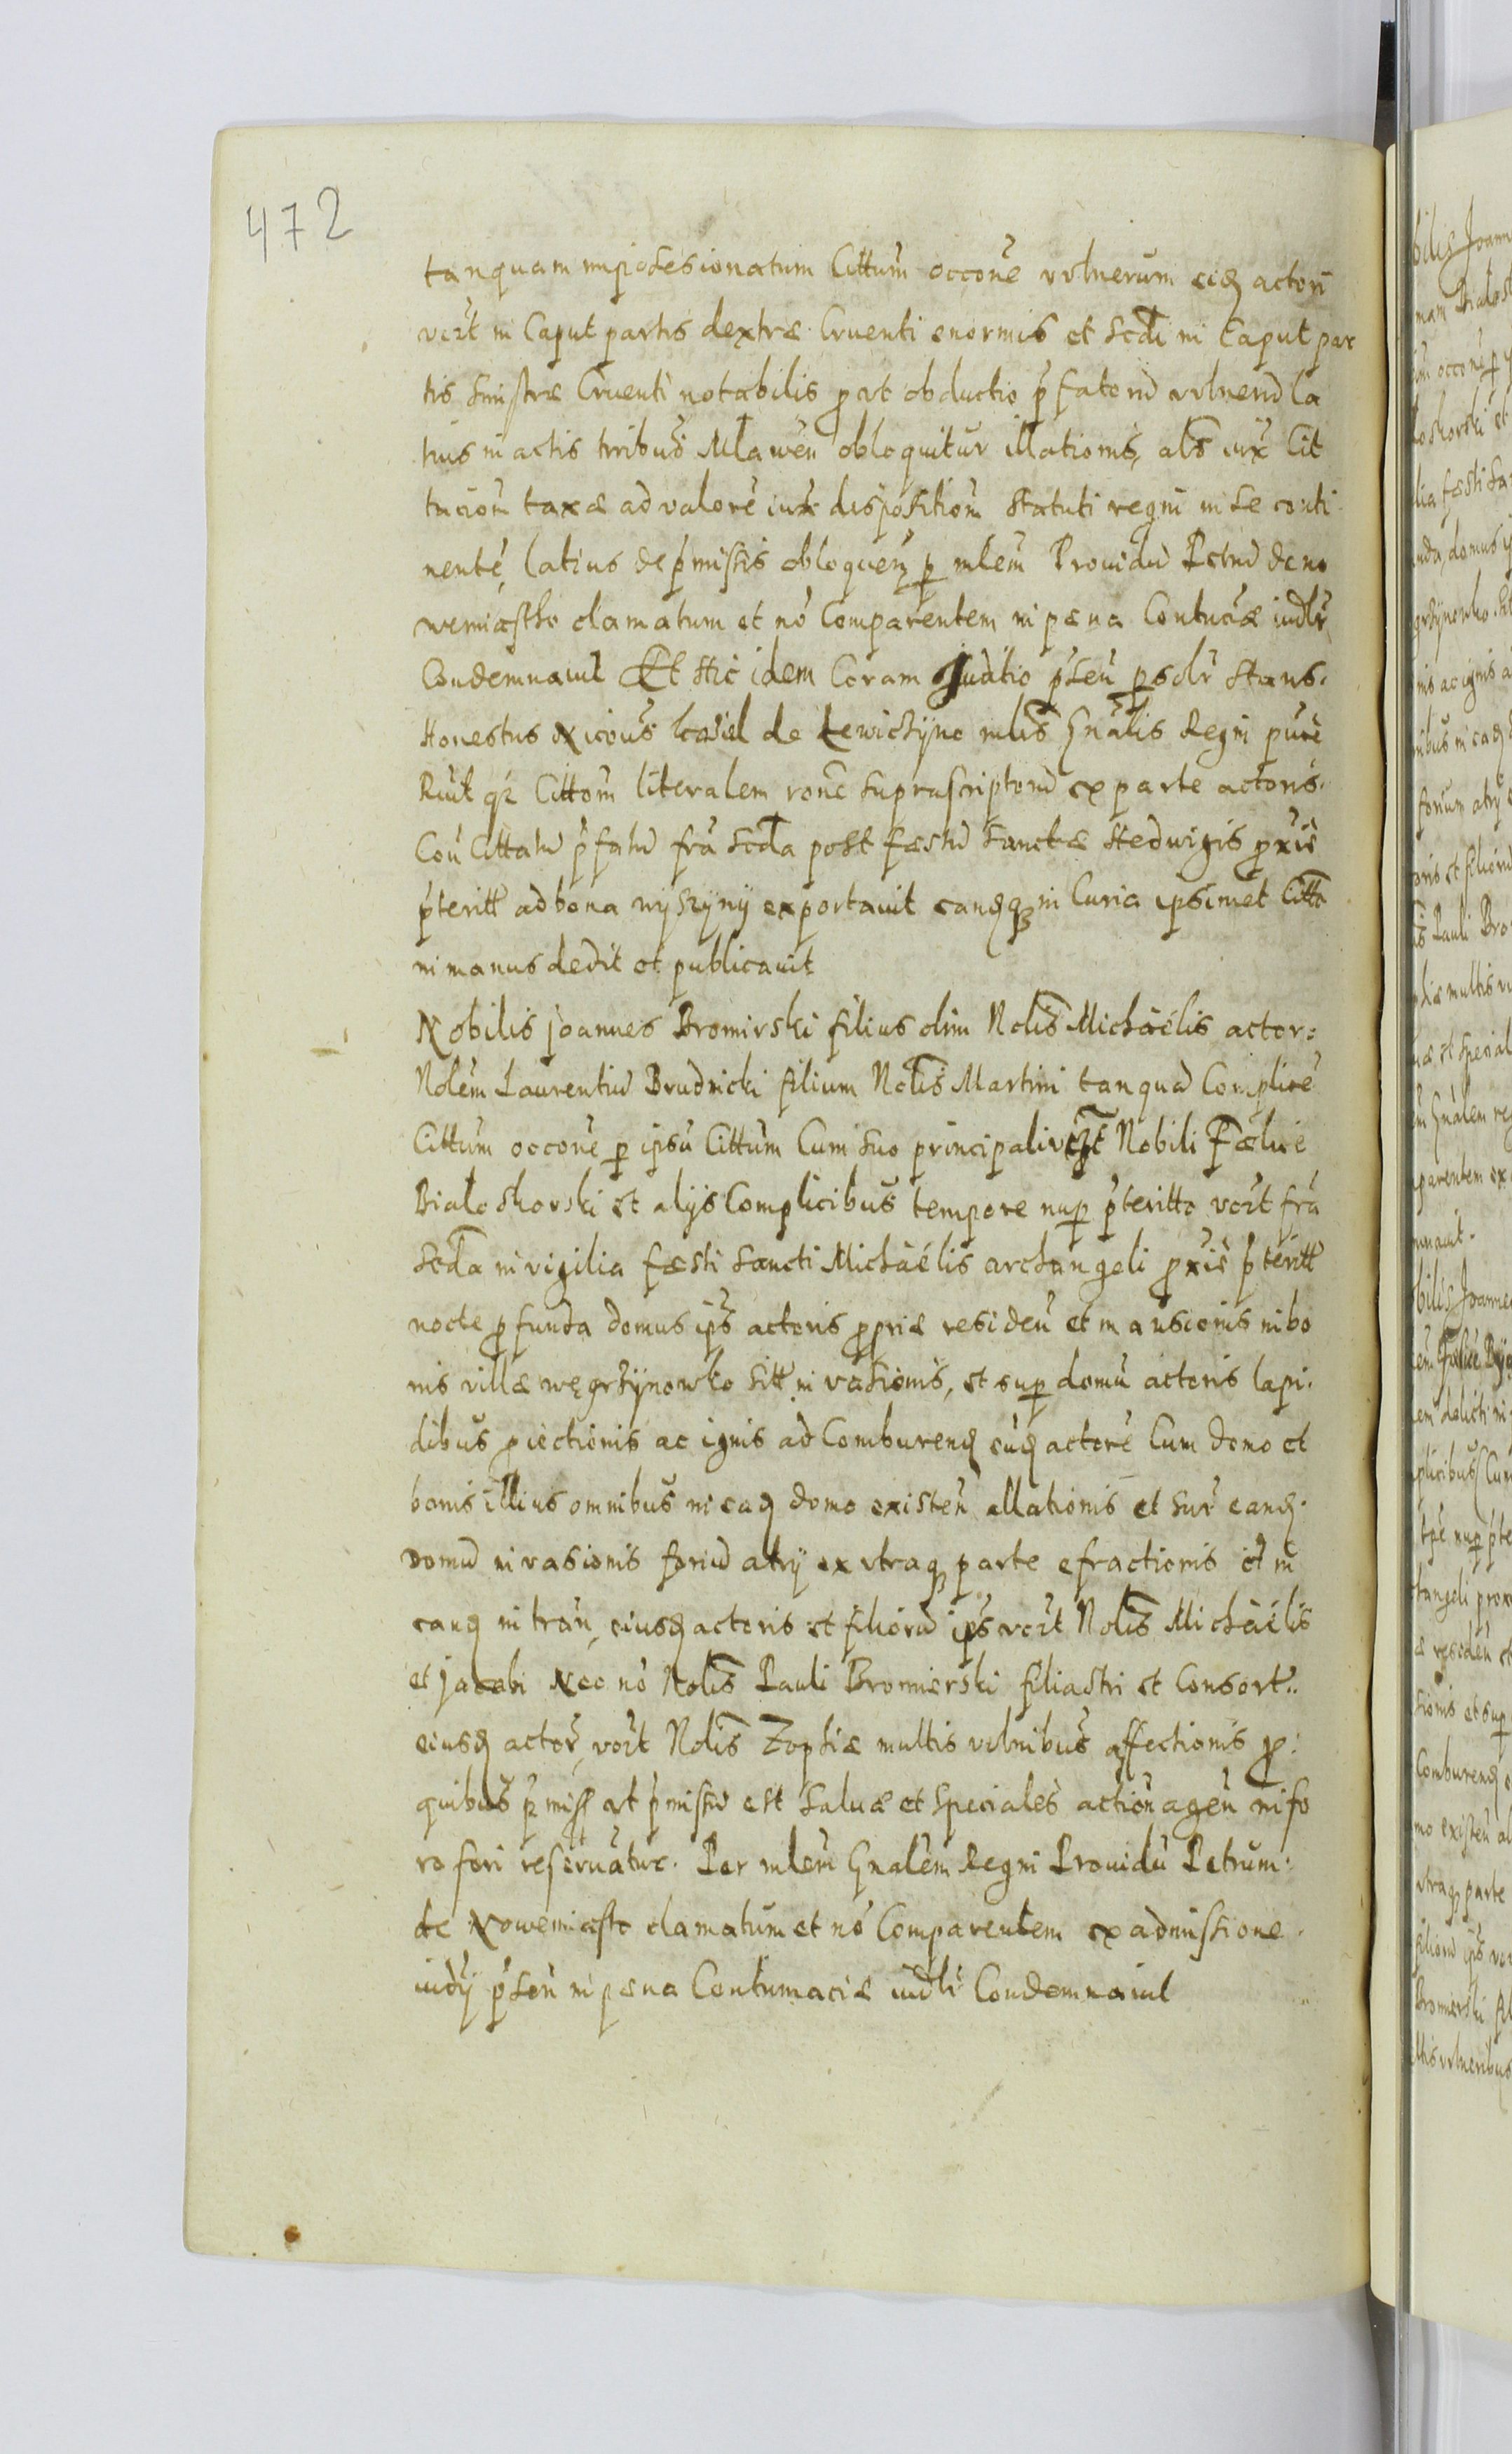 472
tanquam impossesionatum Cittum occone vvlnerum eidꝫ actori
vczt in Caput partis dextræ Cruenti enormis et Scdi in Caput par
tis Sinistræ Cruenti notabilis prout obductio præfatorũ vvlnerũ la
tius in actis tribus Mławen obloquitur illationis, als iux Cit
taciom taxæ ad valorẽ iux dispositiom Statuti regni in se conti
nentẽ, latius de pmissis obloquen, p mlem Prouidũ Petrũ de no
wemiastho clamatum et nõ Comparentem in pæna Contuciæ iudlr
Condemnauit Et Hic idem Coram Juditio psen psolr Stans.
Honestus Nicous Kosiel de Lewiczyno mlis Gnalis Regni pure
Rcuit qz Cittom literalem rone suprascriptorũ ex parte actoris.
Cou Cittatũ pfatũ fra Scda post fæstũ Sanctæ Hedwigis proxie
pteritt ad bona wyszyny exportauit eandꝫqꝫ in Curia ipsimet Citto
in manus dedit et publicauit
Nobilis Joannes Bromirski filius olim Nolis Michaëlis actor:
Nolem Laurentiũ Brudnicki filium Nolis Martini tanquã Complicẽ
Cittum occone p ipsũ Cittum Cum suo principali vczt Nobili Fælice
Białoskorski et alijs Complicibus tempore nup pteritto vczt fra
Scda in vigilia fæsti Sancti Michaëlis archangeli proxie pteritt
nocte profunda domus ips actoris propriæ residen et mansionis in bo
nis villæ węgrzynowko sitt in vasionis, et sup domũ actoris lapi.
dibus proiectionis ac ignis ad Comburendꝫ eũdꝫ actorẽ Cum domo et
bonis illius omnibus in eadꝫ domo existen allationis et sur eandꝫ.
Domũ in vasionis foriũ atrij ex vtraqꝫ parte efractionis et in
eandꝫ in tran, eiusdꝫ actoris et filiorũ ips vczt Nolis Michaëlis
et Jacobi Nec nõ Nolis Pauli Bromierski filiastri et Consort..
eiusdꝫ actor, vczt Nolis Zophiæ multis vvlnibus affectionis pro:
quibus pmiss vt pmissũ est Saluæ et Speciales action agen in fo
ro fori reseruatur. Per mlem Gnalem Regni Prouidũ Petrum:
de Nowemiasto clamatum et nõ Comparentem ex admissione.
iudij psen in pæna Contumaciæ iudli Condemnauit